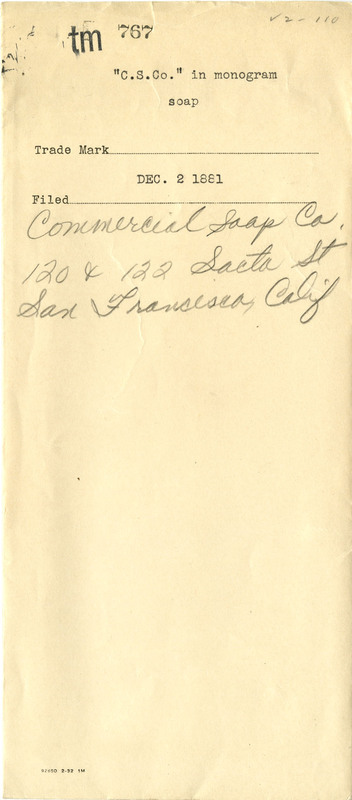 V2-110
tm 767
"C.S.Co." in monogram
soap
Trade Mark
DEC. 2 1881
Filed
Commercial Soap Co.
120 & 122 Sacto St
San Francisco, Calif
2-32 1M